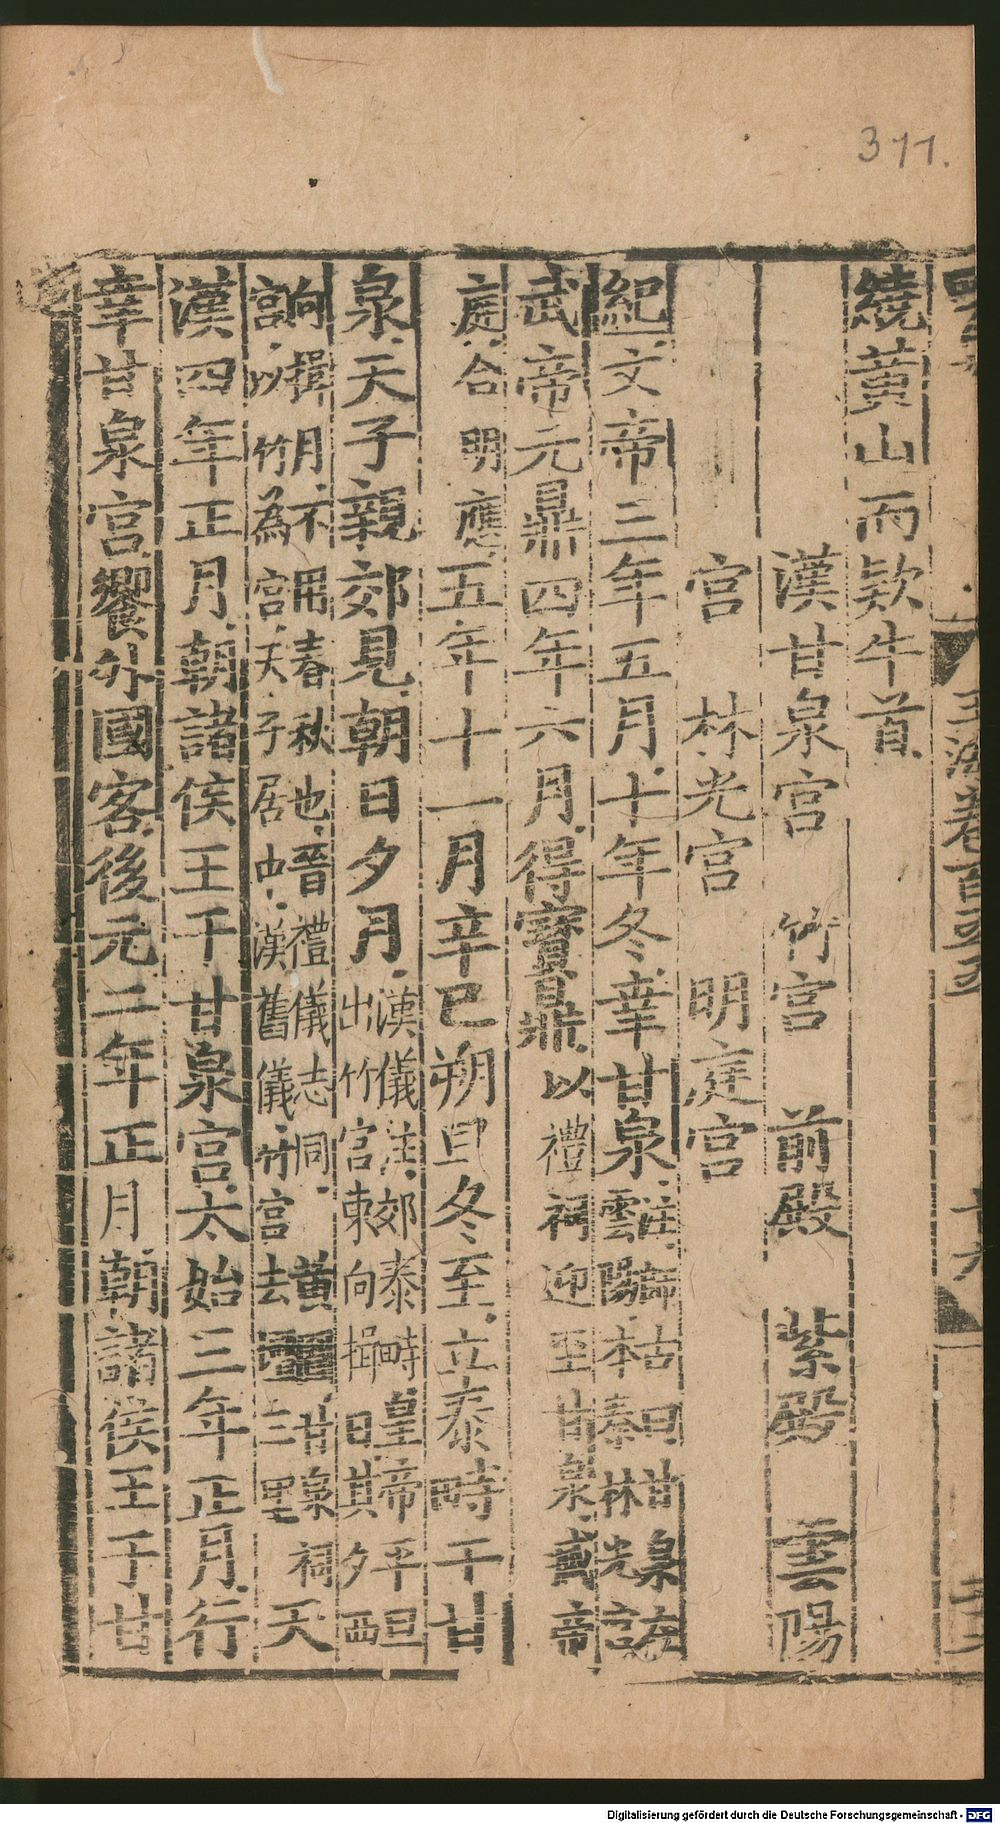 311.
繞黃山而欵牛首
漢甘泉宮 竹宮 前殿 紫殿 雲陽
宮 林光宮 明庭宮
紀文帝三年五月十年冬幸甘泉
註師古曰甘泉在
雲陽本秦林光宮
武帝元鼎四年六月得寶鼎以禮祠迎至甘泉黃帝
庭合明應五年十一月辛巳朔旦冬至立泰畤于甘
泉天子親郊見朝日夕月
漢儀注郊泰畤皇帝平旦
出竹宮東向揖日其夕西
向揖月不用春秋也晉禮儀志同 黃圖甘泉祠
宮以竹為宮天子居中漢舊儀竹宮去壇三里
天
漢四年正月朝諸侯王于甘泉宮太始三年正月行
幸甘泉宮饗外國客後元二年正月朝諸侯王于甘
Digitalisierung gefördert durch die Deutsche Forschungsgemeinschaft - DFG